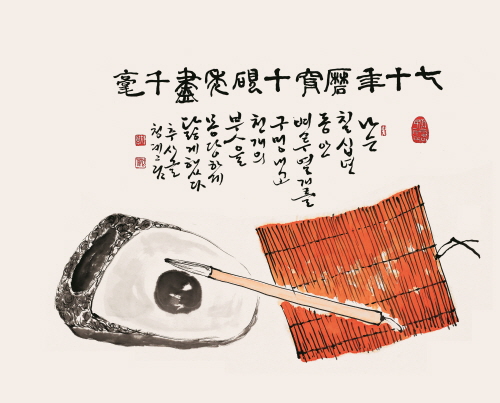 七十年磨穿十硯禿盡千毫
나는
칠십년
동안
벼루열개를
구멍내고
천개의
붓을
몽당하게
닳게했다
추사글
청계그림